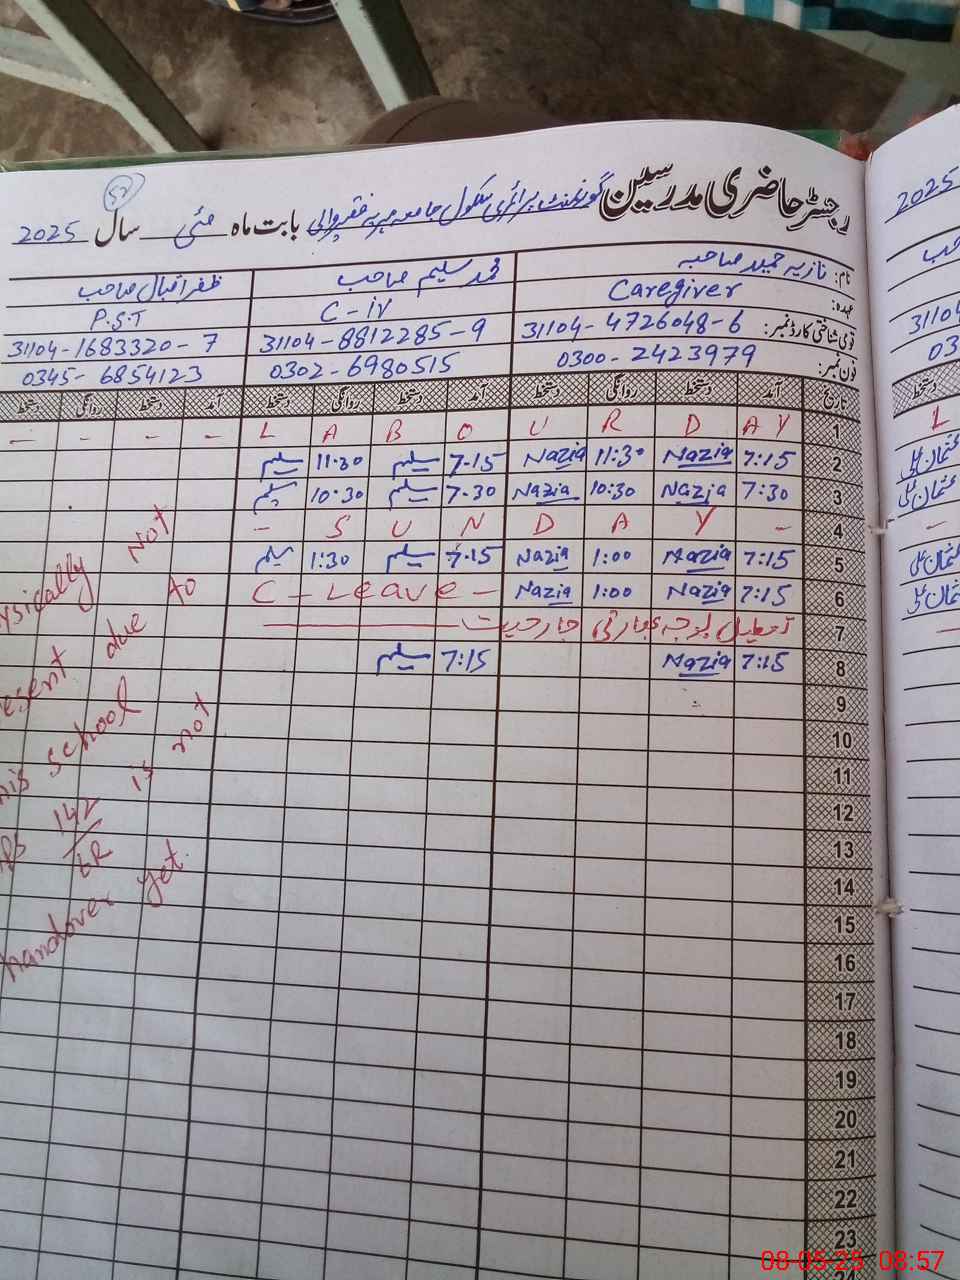 52
رجسٹر حاضری مدرسین گورنمنٹ پرائمری سکول جامعہ مہریہ فقیر والی بابت ماہ مئی سال 2025
نام: نازیہ حمید صاحبہ محمد سلیم صاحب ظفر اقبال صاحب
عہدہ: Caregiver C-iV P.S.T
قومی شناختی کارڈ نمبر: 31104-4726048-6 31104-8812285-9 31104-1683320-7
فون نمبر: 0300-2423979 0302-6980515 0345-6854123
تاریخ آمد دستخط روانگی دستخط آمد دستخط روانگی دستخط آمد دستخط روانگی دستخط
1 L A B O U R D A Y - - - -
2 7:15 Nazia 11:30 Nazia 7-15 سلیم 11-30 سلیم
3 7:30 Nazia 10:30 Nazia 7-30 سلیم 10:30 سلیم
4 - S U N D A Y -
5 7:15 Nazia 1:00 Nazia 7-15 سلیم 1:30 سلیم
6 7:15 Nazia 1:00 Nazia C-Leave-
7 تعطیل بوجہ بھارتی جارحیت
8 7:15 Nazia 7:15 سلیم
9
10
11
12
13
14
15
16
17
18
19
20
21
22
23
24
ysically not
esent due to
his school
142/6R is not
handover yet.
2025
صاحب
31104
03
دستخط
L
عثمان علی
عثمان علی
-
عثمان علی
عثمان علی
08-05-25 08:57